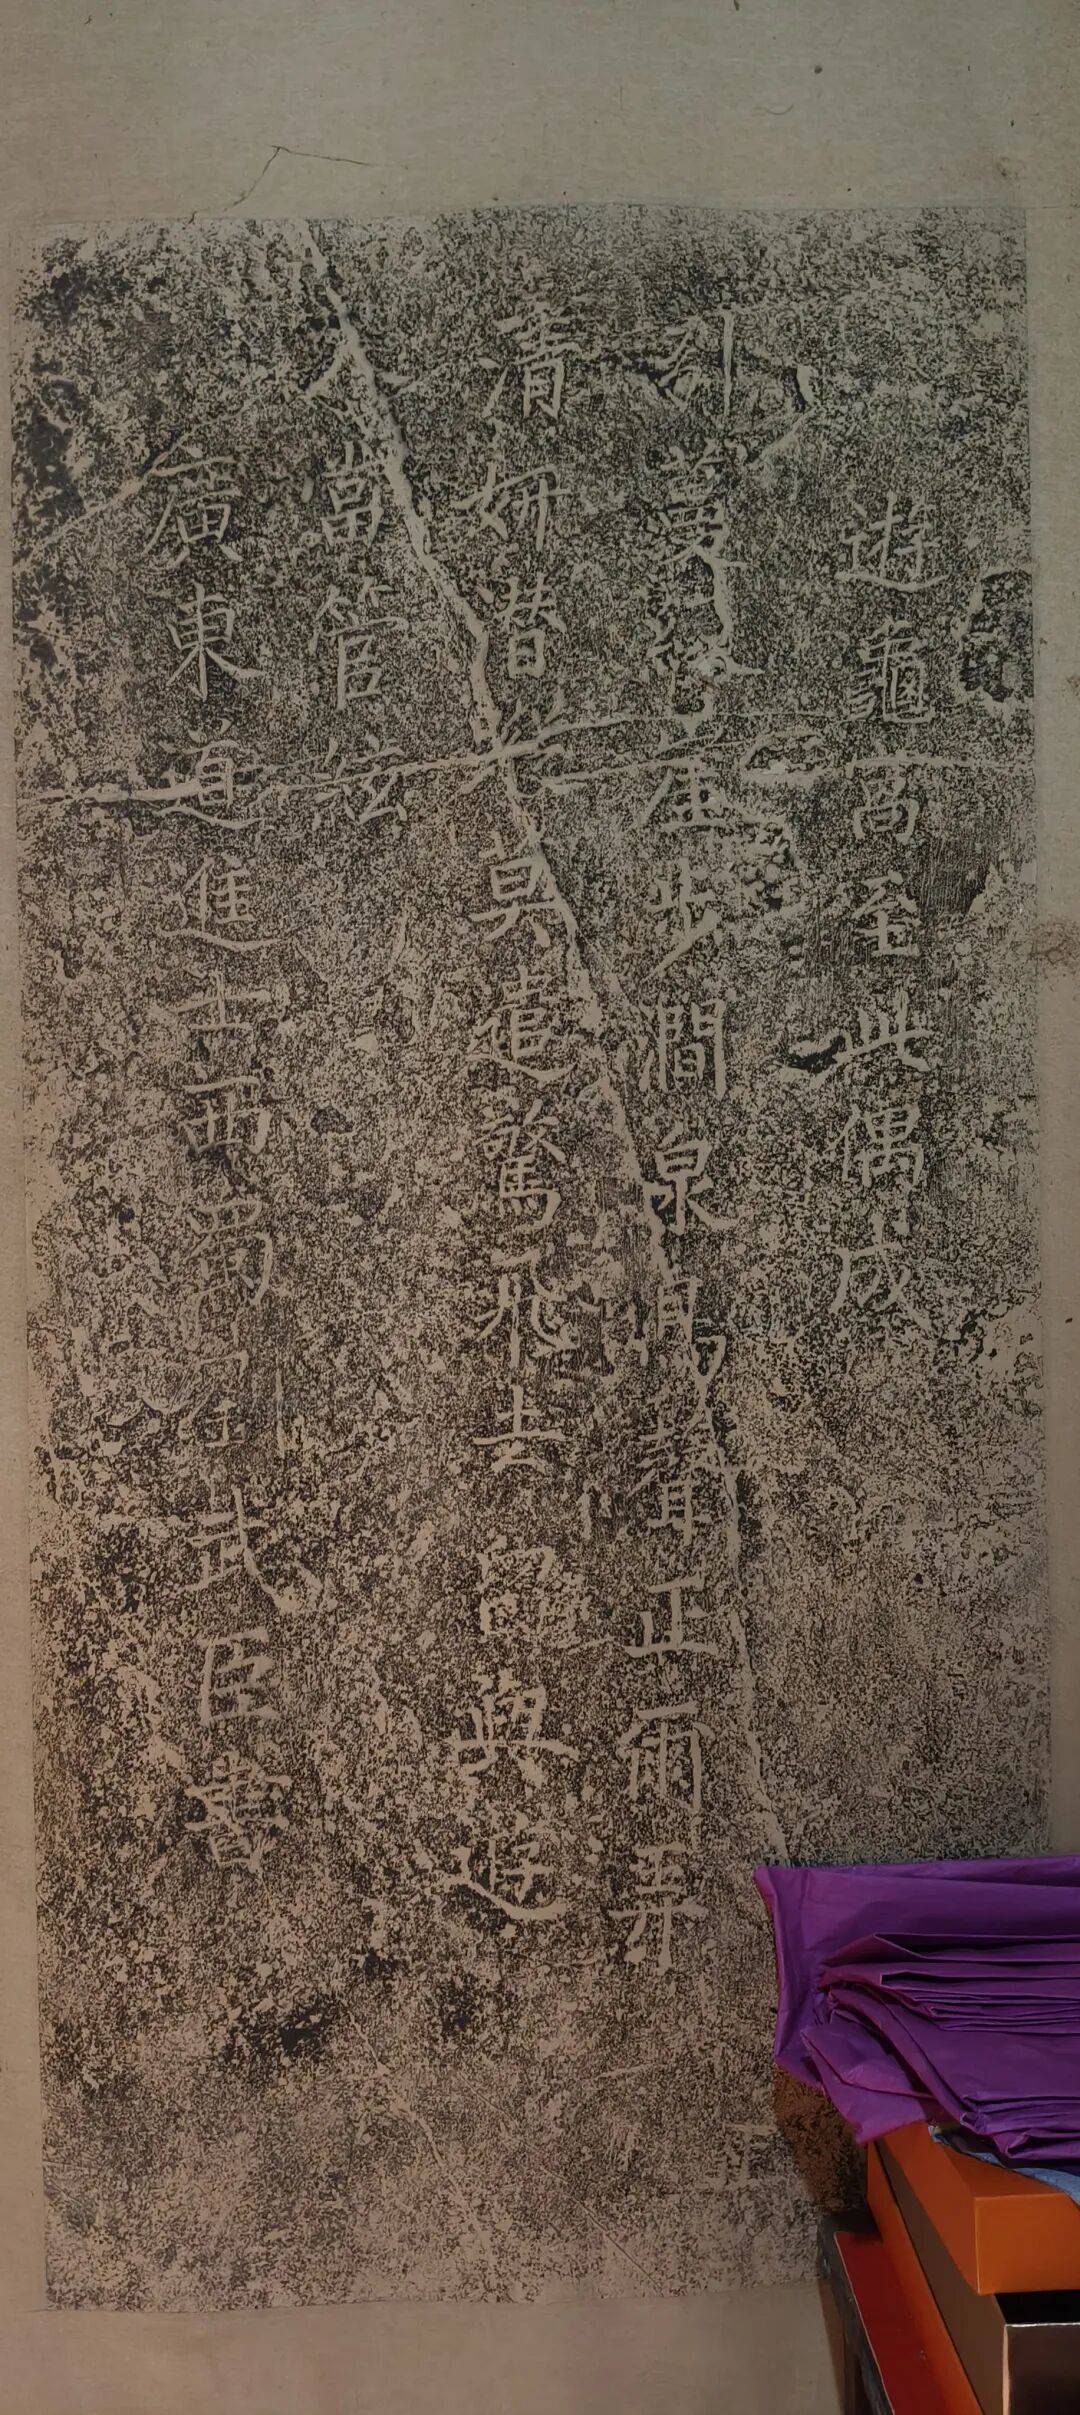 遊龜至此偶成
引蔓緣崖步澗泉鳥聲正爾弄
清妍潛莫遣驚飛去留與遊
人當管絃
廣東道進士西蜀武臣書